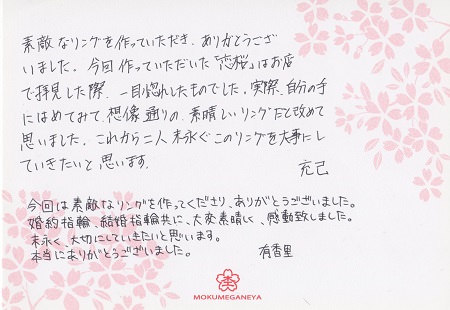 素敵なリングを作っていただき、ありがとうござ
いました。今回作っていただいた「恋桜」はお店
で拝見した際、一目惚れしたものでした。実際、自分の手
にはめてみて、想像通りの、素晴しいリングだと改めて
思いました。これから二人末永ぐこのリングを大事にし
ていきたいと思います。
充己
今回は素敵なリングを作ってくださり、ありがとうございました。
婚約指輪、結婚指輪共に、大変素晴しく、感動致しました。
末永く、大切にしていきたいと思います。
本当にありがとうございました。
有香里
MOKUMEGANEYA